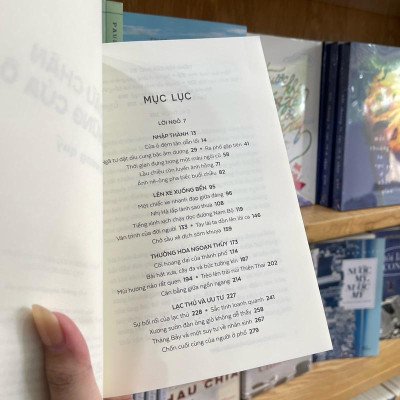 MỤC LỤC
LỜI NGỎ 7
NHẬP THÀNH 13
Cửa ô đêm tàn dẫn lối 14
ngã tư dắt díu cung bậc âm dương 29 * Ra phố gặp tiên 41
Thời gian đựng trong một màu ngói cũ 59
Lầu chiều còn luyến ánh hồng 71
Ảnh nê-ông pha biếc buổi chầu 82
LÊN XE XUỐNG BẾN 95
Một chiếc xe nhanh đạp giữa đàng 96
Nhị Hà tấp lành sao thưa 108
Tiếng xình xịch chạy dọc đường Nam Bộ 119
Ván trình của đời người 133 * Tay lái ta dồn lên lối ca 146
Chở sầu về dịch sớm khuya 159
THƯỞNG HOA NGOẠN THỦY 173
Cõi hoang dại của thành phố 174
Bài hát xưa, cây đa và bức tường lên 187
Mùi hương nào rất quen 194 * Trèo lên trái núi Thiên Thai 202
Cân bằng giữa ngổn ngang 214
LẠC THÚ VÀ ƯU TƯ 227
Sự bối rối của lạc thú 228 * Sắc tình loanh quanh 241
Xương sườn đàn ông giờ không dễ thấy 258
Tháng Bảy và một suy tư về nhân sinh 267
Chốn cuối cùng của người ở phố 279
NƯỚC MỸ
NƯỚC MỸ